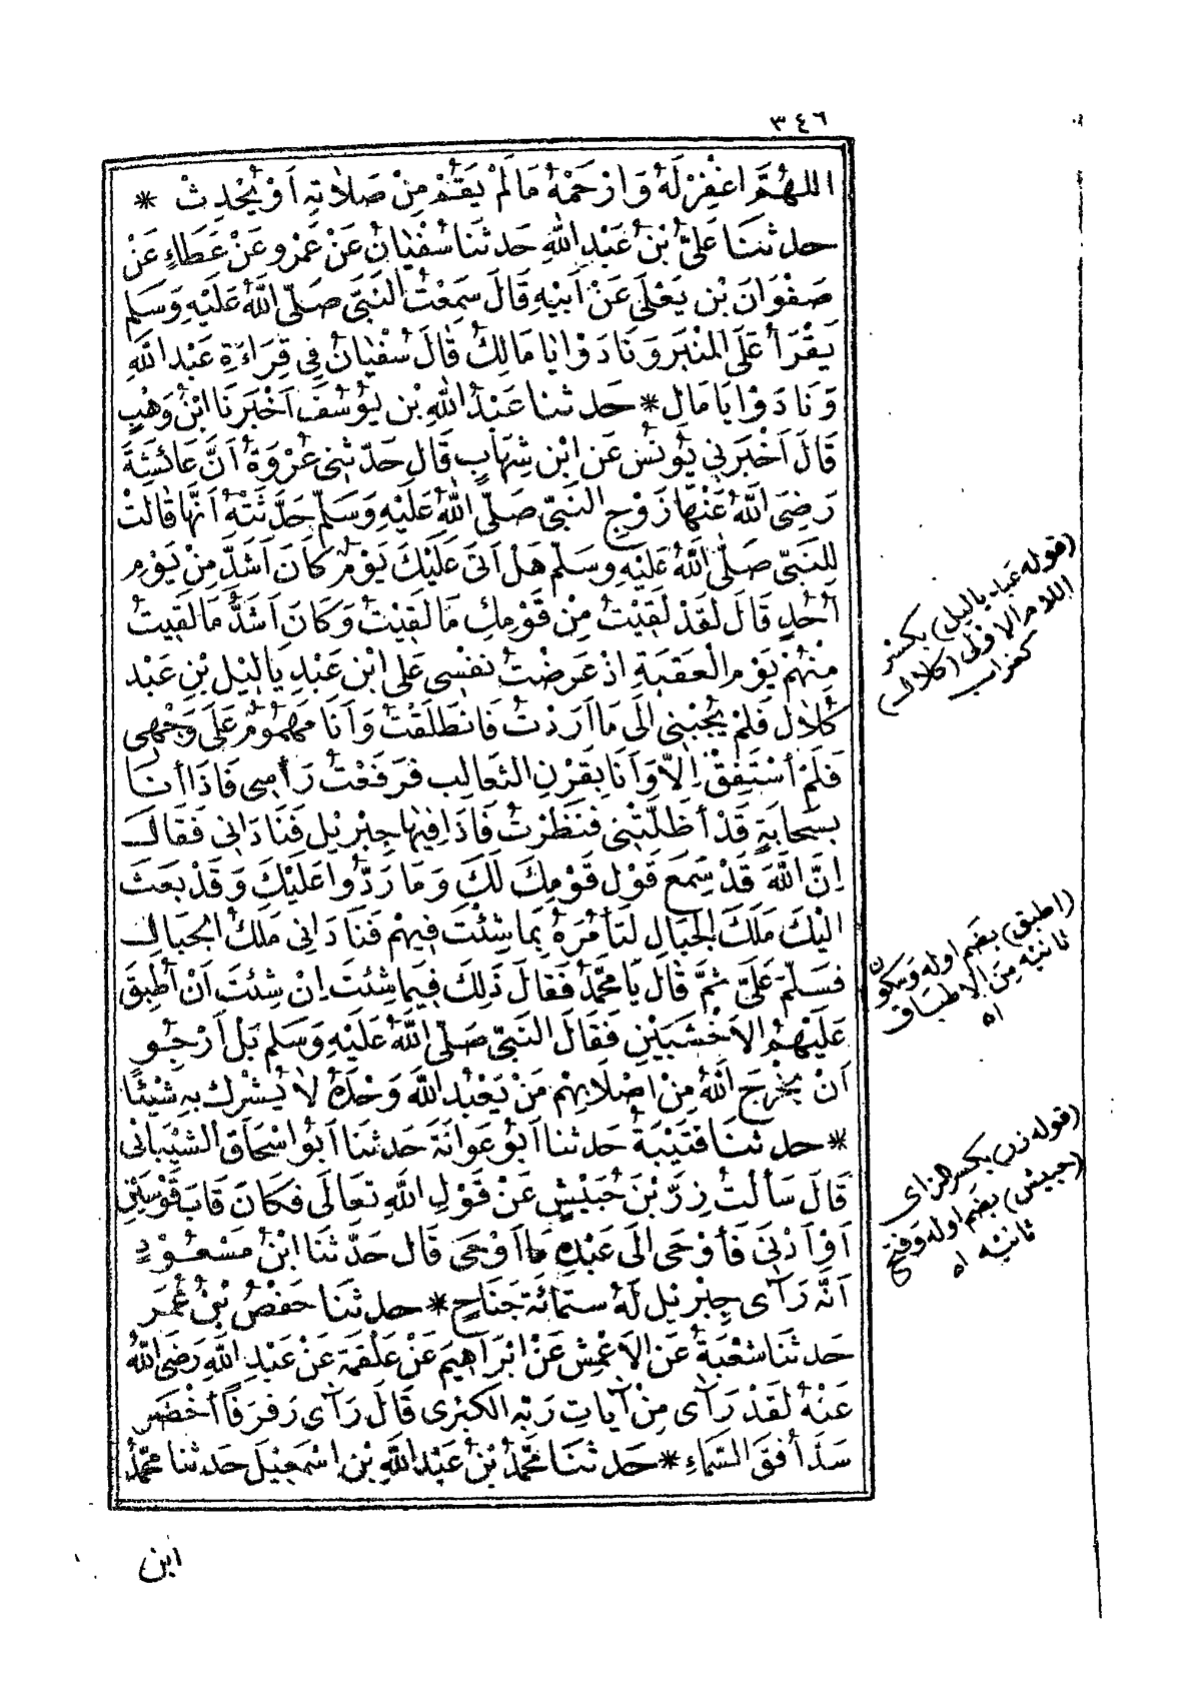 ٣٤٦
اللهُمَّ اغْفِرْ لَهُ وَارْحَمْهُ مَا لَمْ يَقُمْ مِنْ صَلَاتِهِ أَوْ يُحْدِثْ *
حدثنَا عَلِيُّ بْنُ عَبْدِ اللهِ حَدثنا سُفْيَانُ عَنْ عَمْرٍو عَنْ عَطَاءٍ عَنْ
صَفْوَانَ بْنِ يَعْلَى عَنْ أَبِيهِ قَالَ سَمِعْتُ النَّبِيَّ صَلَّى اللهُ عَلَيْهِ وَسَلم
يَقْرَأُ عَلَى المِنْبَرِ وَنَادَوْا يَا مَالِكُ قَالَ سُفْيَانُ فِي قِرَاءَةِ عَبْدِ اللهِ
وَنَادَوْا يَا مَالِ * حَدثنا عَبْدُ اللهِ بْنِ يُوسُفَ أَخْبَرَنَا ابْنُ وَهْبٍ
قَالَ أَخْبَرَنِي يُونُسُ عَنِ ابْنِ شِهَابٍ قَالَ حَدَّثَنِي عُرْوَةُ أَنَّ عَائِشَةَ
رَضِيَ اللهُ عَنْهَا زَوْجِ النَّبِيِّ صَلَّى اللهُ عَلَيْهِ وَسَلَّمَ حَدَّثَتْهُ أَنَّهَا قَالَتْ
لِلنَّبِيِّ صَلَّى اللهُ عَلَيْهِ وَسَلَّمَ هَلْ أَتَى عَلَيْكَ يَوْمٌ كَانَ أَشَدَّ مِنْ يَوْمِ
أُحُدٍ قَالَ لَقَدْ لَقِيتُ مِنْ قَوْمِكِ مَا لَقِيتُ وَكَانَ أَشَدُّ مَا لَقِيتُ
مِنْهُمْ يَوْمَ العَقَبَةِ إِذْ عَرَضْتُ نَفْسِي عَلَى ابْنِ عَبْدِ يَالِيلَ بْنِ عَبْدِ
كُلَالٍ فَلَمْ يُجِبْنِي إِلَى مَا أَرَدْتُ فَانْطَلَقْتُ وَأَنَا مَهْمُومٌ عَلَى وَجْهِي
فَلَمْ أَسْتَفِقْ إِلَّا وَأَنَا بِقَرْنِ الثَّعَالِبِ فَرَفَعْتُ رَأْسِي فَإِذَا أَنَا
بِسَحَابَةٍ قَدْ أَظَلَّتْنِي فَنَظَرْتُ فَإِذَا فِيهَا جِبْرِيلُ فَنَادَانِي فَقَالَ
إِنَّ اللهَ قَدْ سَمِعَ قَوْلَ قَوْمِكَ لَكَ وَمَا رَدُّوا عَلَيْكَ وَقَدْ بَعَثَ
إِلَيْكَ مَلَكَ الجِبَالِ لِتَأْمُرَهُ بِمَا شِئْتَ فِيهِمْ فَنَادَانِي مَلَكُ الجِبَالِ
فَسَلَّمَ عَلَيَّ ثُمَّ قَالَ يَا مُحَمَّدُ فَقَالَ ذَلِكَ فِيمَا شِئْتَ إِنْ شِئْتَ أَنْ أُطْبِقَ
عَلَيْهِمُ الأَخْشَبَيْنِ فَقَالَ النَّبِيُّ صَلَّى اللهُ عَلَيْهِ وَسَلم بَلْ أَرْجُو
أَنْ يُخْرِجَ اللهُ مِنْ أَصْلَابِهِمْ مَنْ يَعْبُدُ اللهَ وَحْدَهُ لَا يُشْرِكُ بِهِ شَيْئًا
* حدثنَا قُتَيْبَةُ حَدثنا أَبُو عَوَانَةَ حَدثنَا أَبُو إِسْحَاقَ الشَّيْبَانِي
قَالَ سَأَلْتُ زِرَّ بْنَ حُبَيْشٍ عَنْ قَوْلِ اللهِ تَعَالَى فَكَانَ قَابَ قَوْسَيْنِ
أَوْ أَدْنَى فَأَوْحَى إِلَى عَبْدِهِ مَا أَوْحَى قَالَ حَدَّثَنَا ابْنُ مَسْعُودٍ
أَنَّهُ رَأَى جِبْرِيلَ لَهُ سِتُّمِائَةِ جَنَاحٍ * حدثنَا حَفْصُ بْنُ عُمَرَ
حَدثنَا شُعْبَةُ عَنِ الأَعْمَشِ عَنْ إِبْرَاهِيمَ عَنْ عَلْقَمَةَ عَنْ عَبْدِ اللهِ رَضِيَ اللهُ
عَنْهُ لَقَدْ رَأَى مِنْ آيَاتِ رَبِّهِ الكُبْرَى قَالَ رَأَى رَفْرَفًا أَخْضَرَ
سَدَّ أُفُقَ السَّمَاءِ * حَدثنَا مُحَمَّدُ بْنُ عَبْدِ اللهِ بْنِ إِسْمَعِيلَ حَدثنا مُحَمَّدُ
ابن
(قوله عبد ياليل) بكسر
اللام الاولى (كلال)
كغراب
(اطبق) بضم اوله وسكون
ثانيه من الاطباق
اه
(قوله زر) بكسر الزاى
(حبيش) بضم اوله وفتح
ثانيه اه